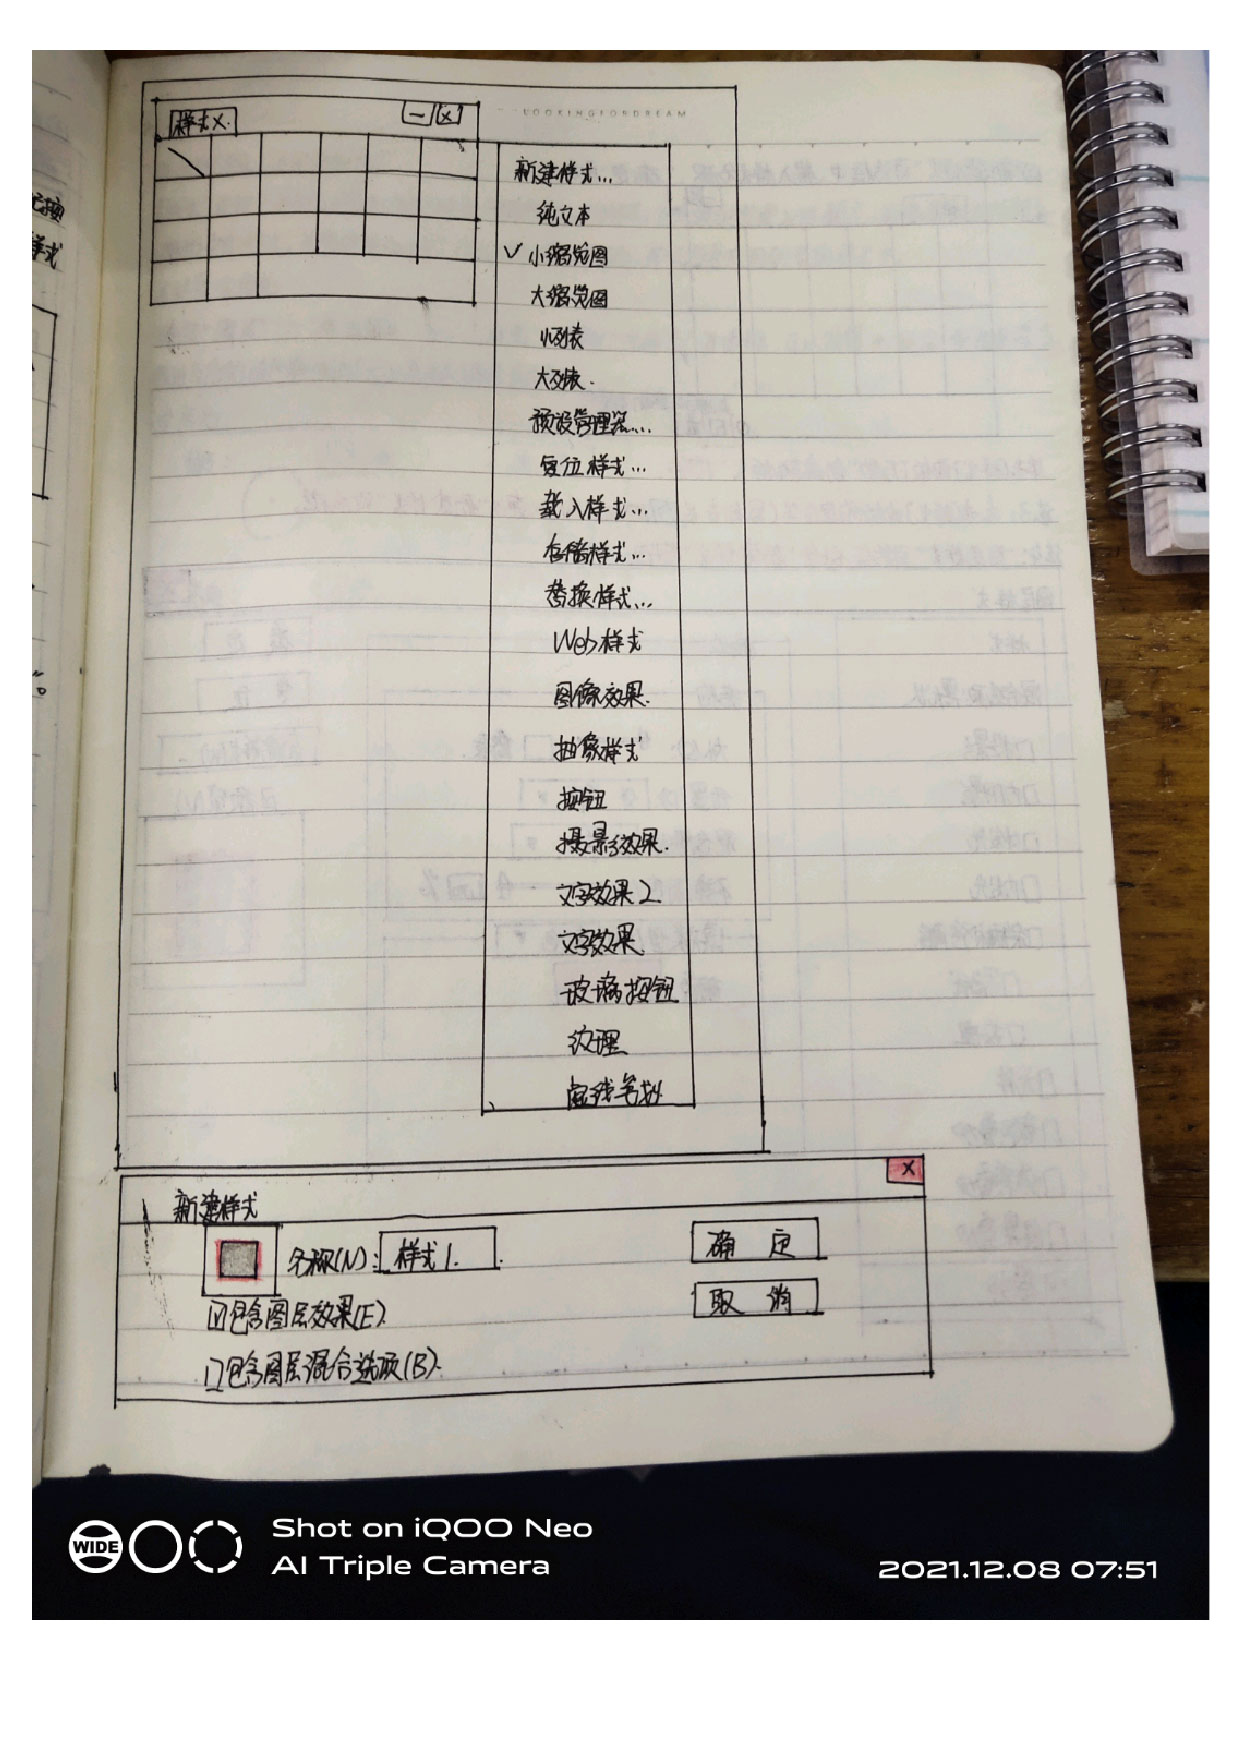 LOOKINGFORDREAM
样式 ×
新建样式...
纯文本
✓ 小缩览图
大缩览图
小列表
大列表.
预设管理器...
复位样式...
载入样式...
存储样式...
替换样式...
Web样式
图像效果.
抽象样式
按钮
摄影效果.
文字效果2
文字效果
玻璃按钮
纹理
虚线笔划
新建样式
×
名称(N): 样式1.
确 定
☑包含图层效果(E).
取 消
□包含图层混合选项(B).
WIDE
Shot on iQOO Neo
AI Triple Camera
2021.12.08 07:51